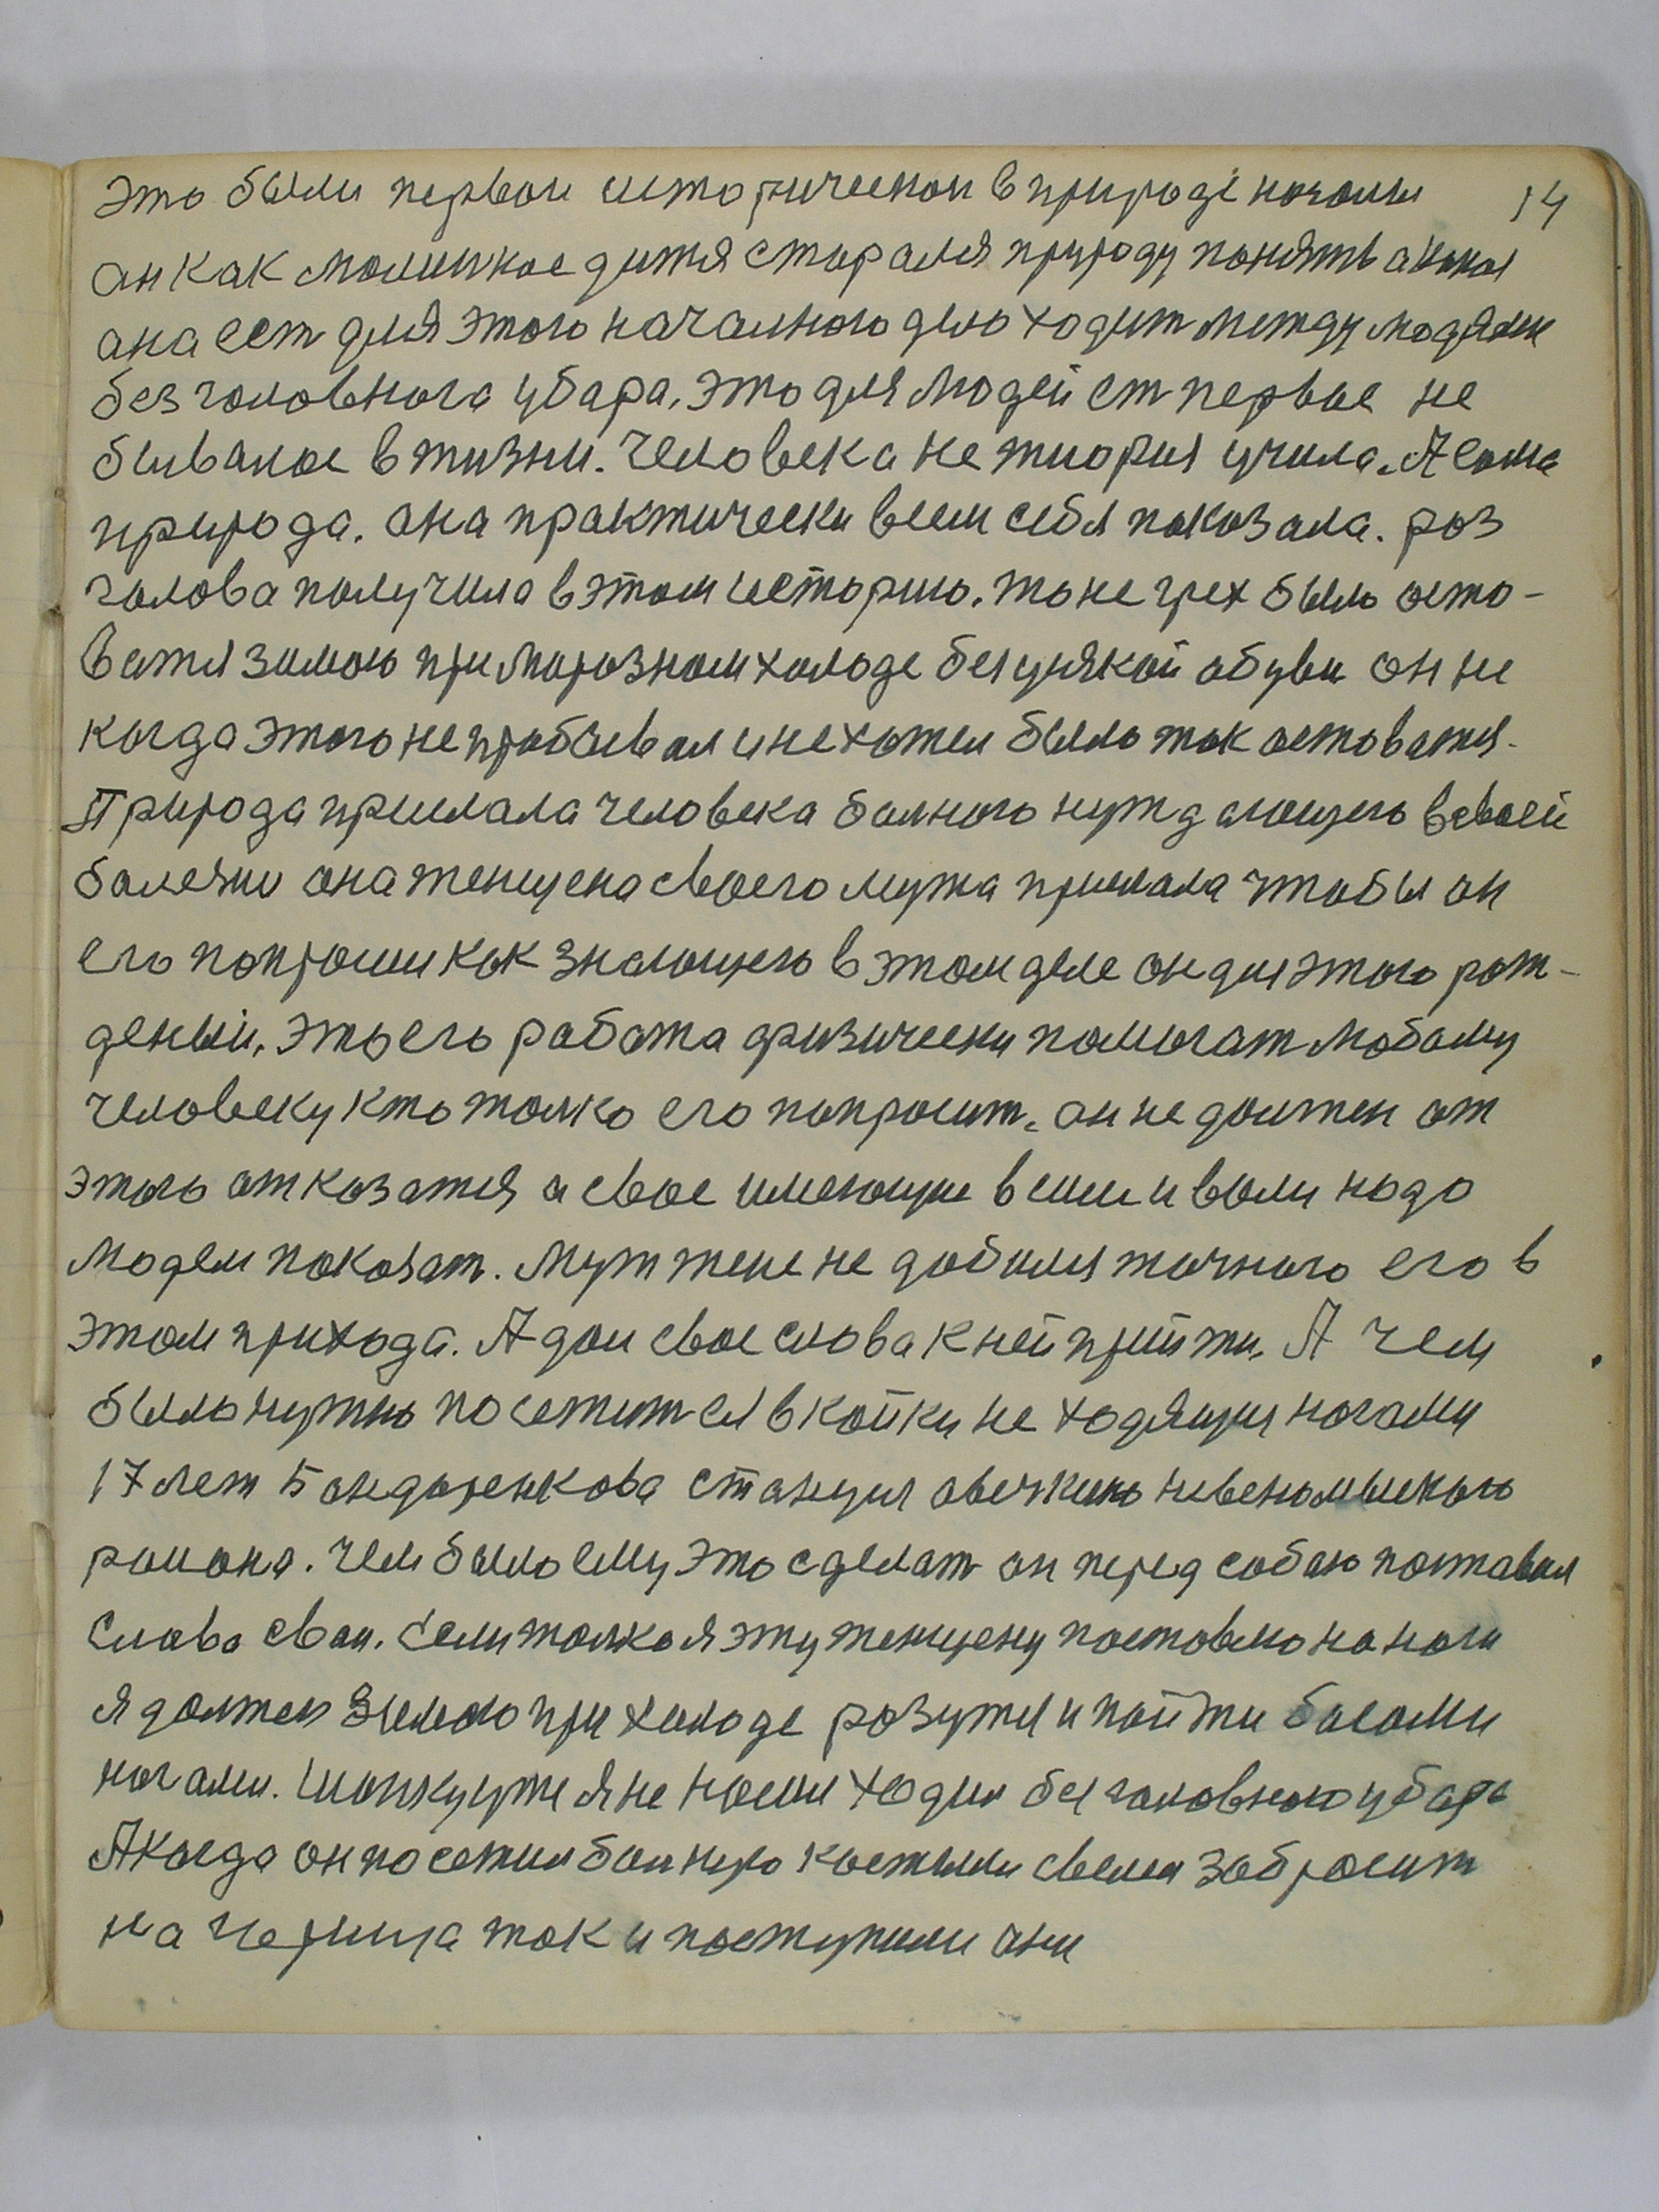 это были первои историческои в природе начали 14
он как маминкое дитя старался природу понять а какая
ана ест для этого началного делю ходит между людями
без головного убара. это для людей ест первое не
бывалое в жизни. Человека не тиория учила. А сама
природа. ана практически всем себя показала. раз
голова получила в этом историю. то не грех было оста-
ватся зимою при морозном холоде без усякой обуви он не
когда этого не пробывал и не хотел было так оставатся.
Природа прислала человека балного нуждающего в своей
балезни она женщена своего мужа прислала чтобы он
его попросил как знающего в этом деле он для этого рож-
деный. это его работа физически помагат любому
человеку кто толко его попросит. он не должен от
этого отказатся а свое имеющие в силы и воли надо
людям показат. Муж жене не добился точного его в
этом прихода. А дал свое слова к ней прийти. А чем
было нужно посетит ея в койки не ходящия ногами
17 лет Бондаренкова станция овечкино невеномыского
раиона. чем было ему это сделат он перед собою поставил
слова свои. если толко я эту женщену поставлю на ноги
я должен зимою при холоде розутся и пойти босыми
ногами. шапку уже я не носил ходил без головного убара
А когда он посетил балную костыли свои забросит
на черища так и поступили они